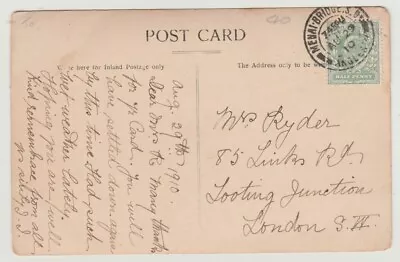 POST CARD
Space here for Inland Postage only
The Address only to be
MENAI-BRIDGE.S.
AU 29
10
ANGLESEY
HALF PENNY
Aug. 29th 1910.
Dear Mrs R. Many thanks
for yr Card. You will
have settled down again
by this time. Had such
wet weather lately.
Hoping you are well
Kind remembrance from all
Mrs Ryder
85 Links Rd
Tooting Junction
London S.W.